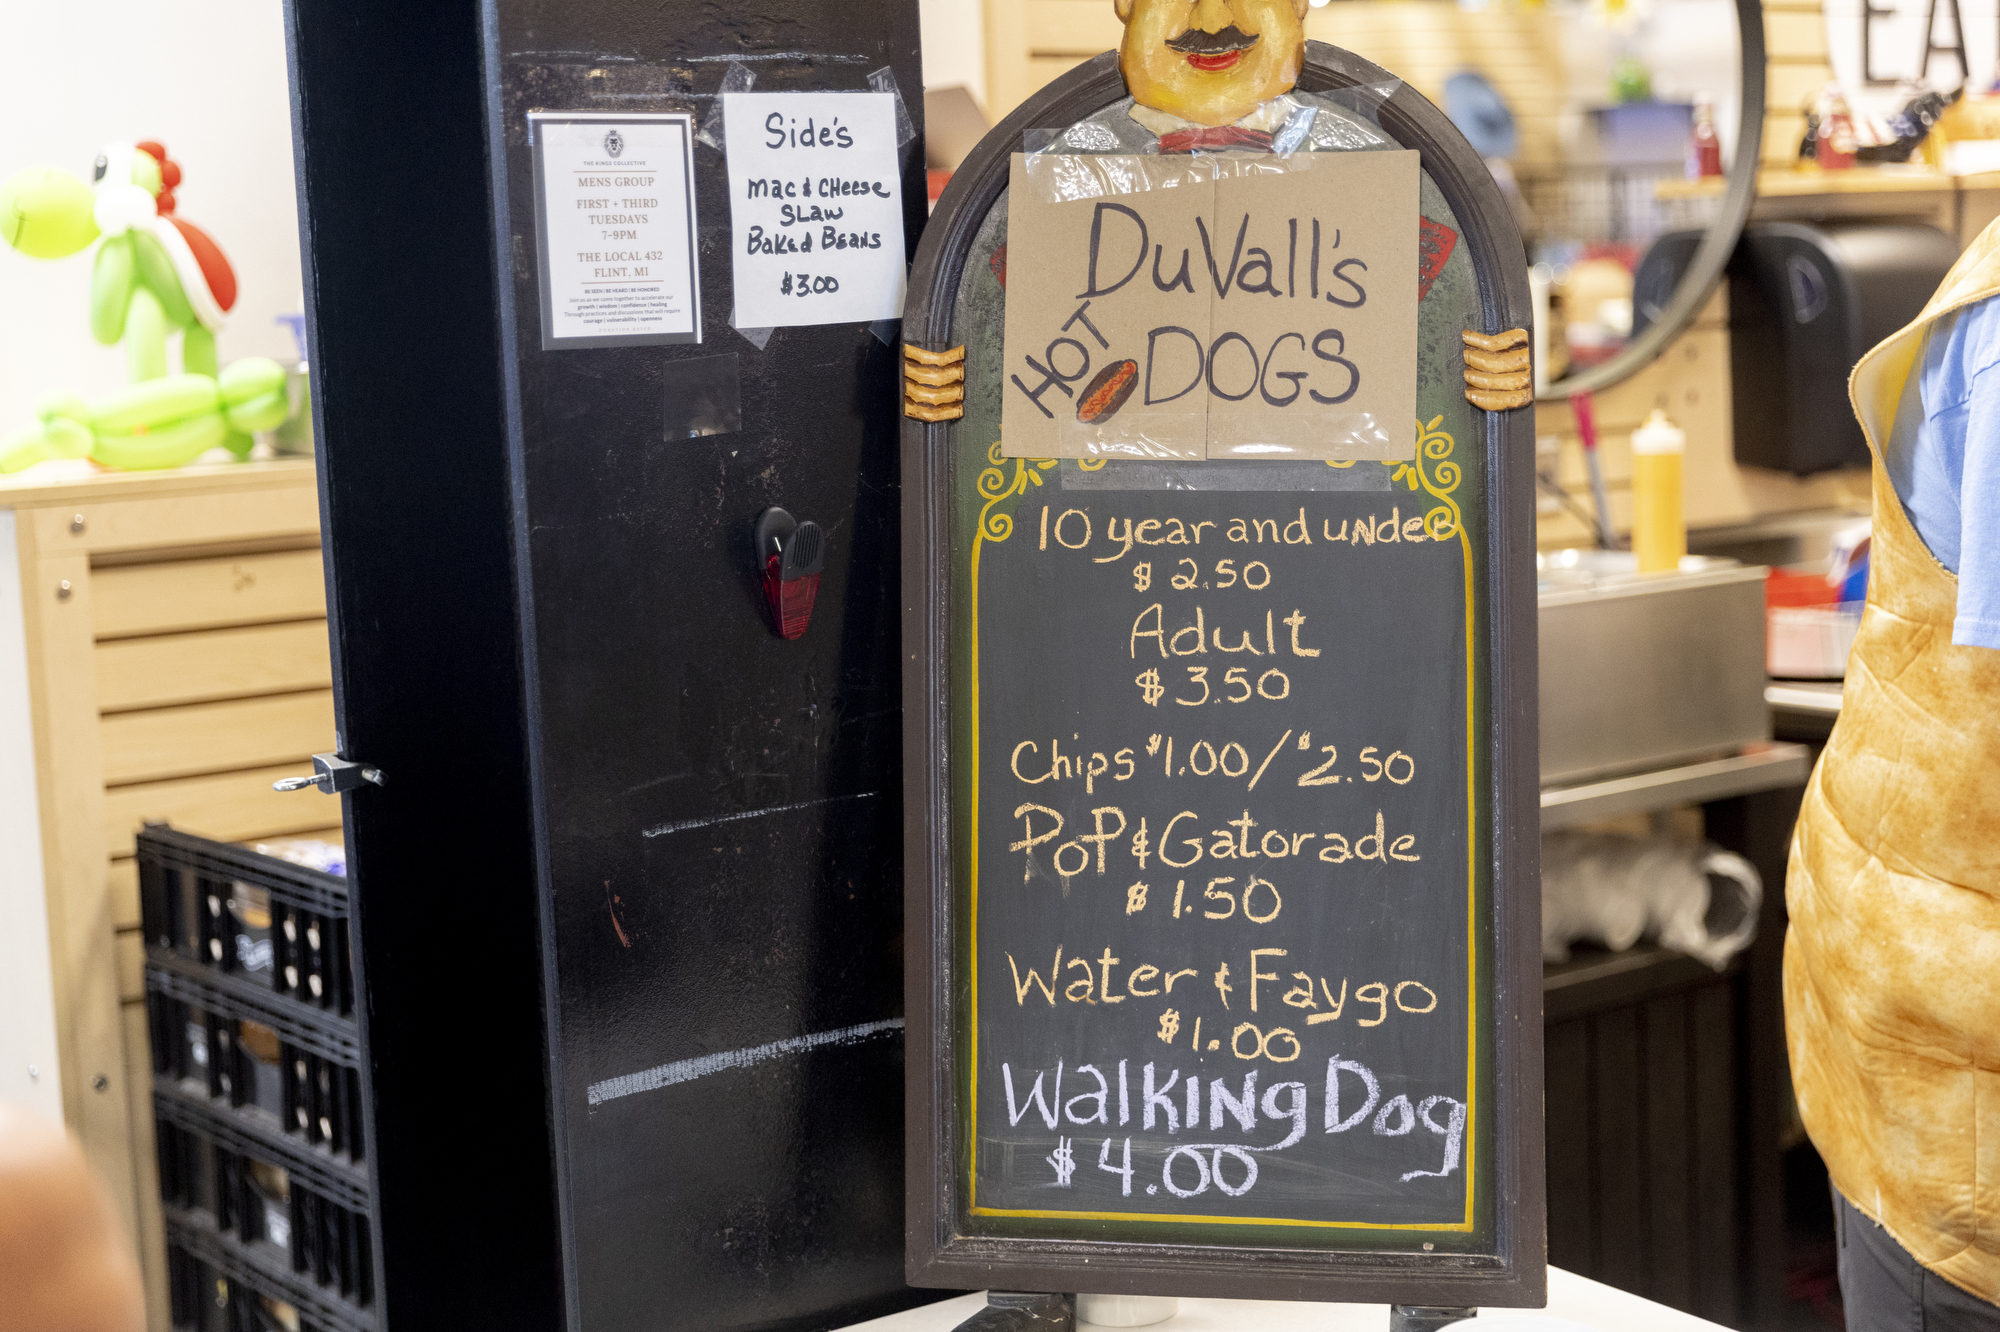 THE KINGS COLLECTIVE
MENS GROUP
FIRST + THIRD
TUESDAYS
7-9PM
THE LOCAL 432
FLINT, MI
BE SEEN | BE HEARD | BE HONORED
Join us as we come together to accelerate our
growth | wisdom | confidence | healing
Through practices and discussions that will require
courage | vulnerability | openness
DONATION BASED
Side's
Mac & Cheese
Slaw
Baked Beans
$3.00
DuVall's
HOT DOGS
10 year and under
$2.50
Adult
$3.50
Chips $1.00/$2.50
PoP & Gatorade
$1.50
Water & Faygo
$1.00
Walking Dog
$4.00
EA